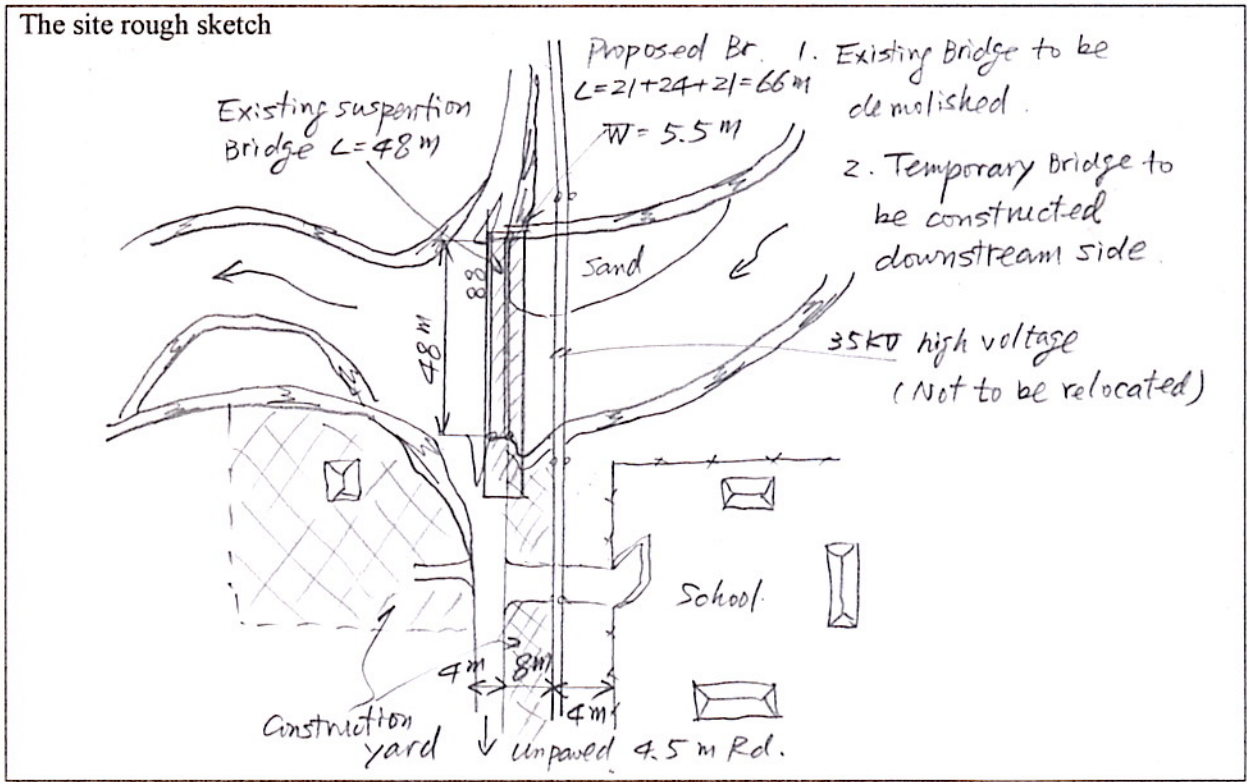 The site rough sketch
Existing suspention
Bridge L=48m
Proposed Br.
L=21+24+21=66m
W=5.5m
1. Existing Bridge to be
demolished.
2. Temporary Bridge to
be constructed
downstream side.
Sand
48m
35KV high voltage
(Not to be relocated)
School.
4m
8m
4m
Construction
yard
Unpaved 4.5m Rd.